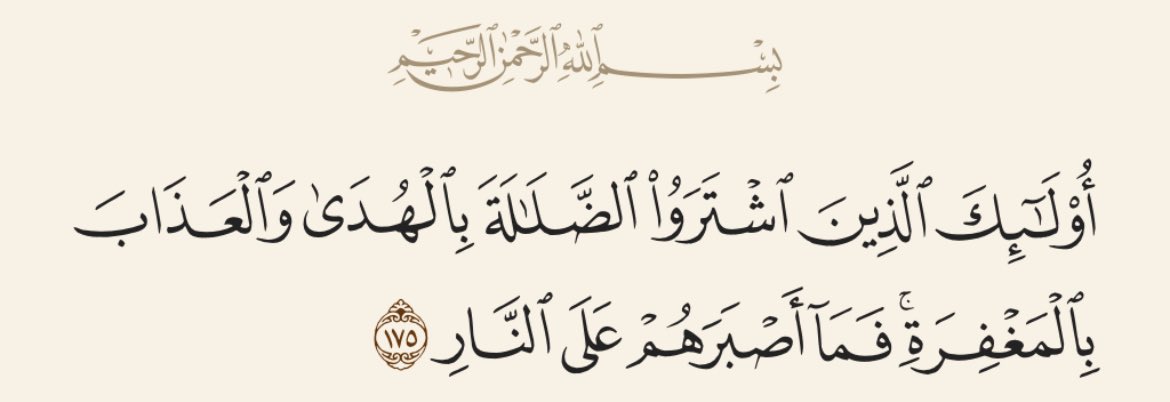 بِسْمِ ٱللَّهِ ٱلرَّحْمَٰنِ ٱلرَّحِيمِ
أُو۟لَـٰٓئِكَ ٱلَّذِينَ ٱشْتَرَوُا۟ ٱلضَّلَـٰلَةَ بِٱلْهُدَىٰ وَٱلْعَذَابَ
بِٱلْمَغْفِرَةِ ۚ فَمَآ أَصْبَرَهُمْ عَلَى ٱلنَّارِ ١٧٥